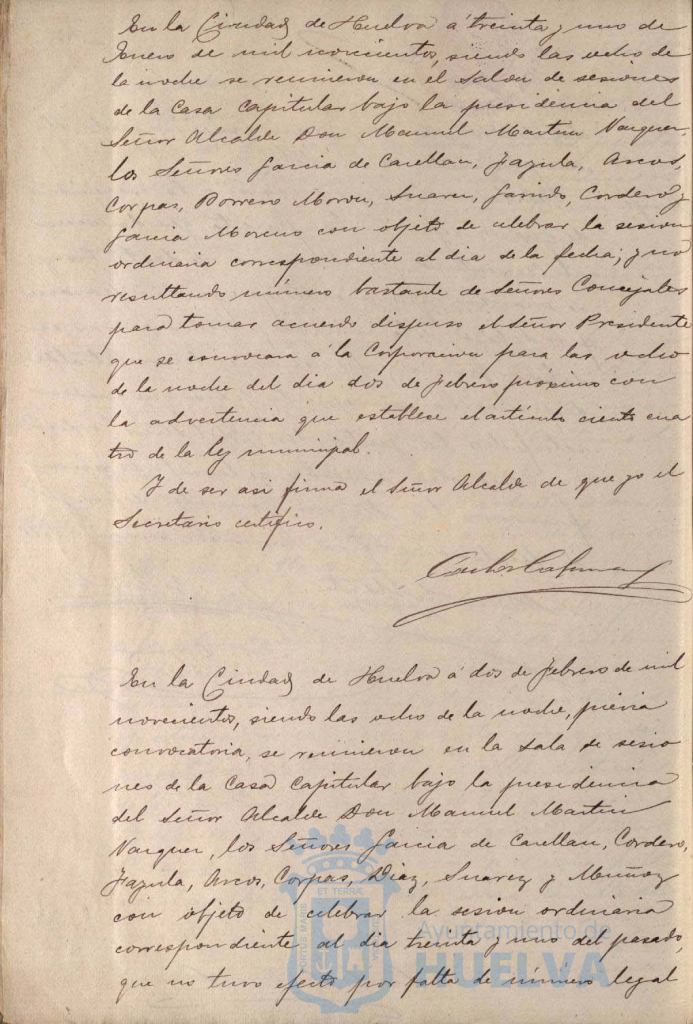 En la Ciudad de Huelva á treinta y uno de
Enero de mil novecientos, siendo las ocho de
la noche se reunieron en el Salon de sesiones
de la Casa Capitular bajo la presidencia del
Señor Alcalde Don Manuel Martin Vazquez,
los Señores Garcia de Casellan, Jazula, Arcos,
Corpas, Borrero Moron, Suarez, Garrido, Cordero y
Garcia Moreno con objeto de celebrar la sesion
ordinaria correspondiente al dia de la fecha; y no
resultando número bastante de Señores Concejales
para tomar acuerdo dispuso el Señor Presidente
que se convocara á la Corporacion para las ocho
de la noche del dia dos de febrero próximo con
la advertencia que establece el articulo ciento cua
tro de la ley municipal.
Y de ser asi firma el Señor Alcalde de que yo el
Secretario certifico.
En la Ciudad de Huelva á dos de febrero de mil
novecientos, siendo las ocho de la noche, previa
convocatoria, se reunieron en la sala de sesio
nes de la Casa Capitular bajo la presidencia
del Señor Alcalde Don Manuel Martin
Vazquez, los Señores Garcia de Casellan, Cordero,
Jazula, Arcos, Corpas, Diaz, Suarez y Muñoz
con objeto de celebrar la sesion ordinaria
correspondiente al dia treinta y uno del pasado,
que no tuvo efecto por falta de número legal
ET TERRÆ
PORTUS MARIS
Ayuntamiento de
HUELVA